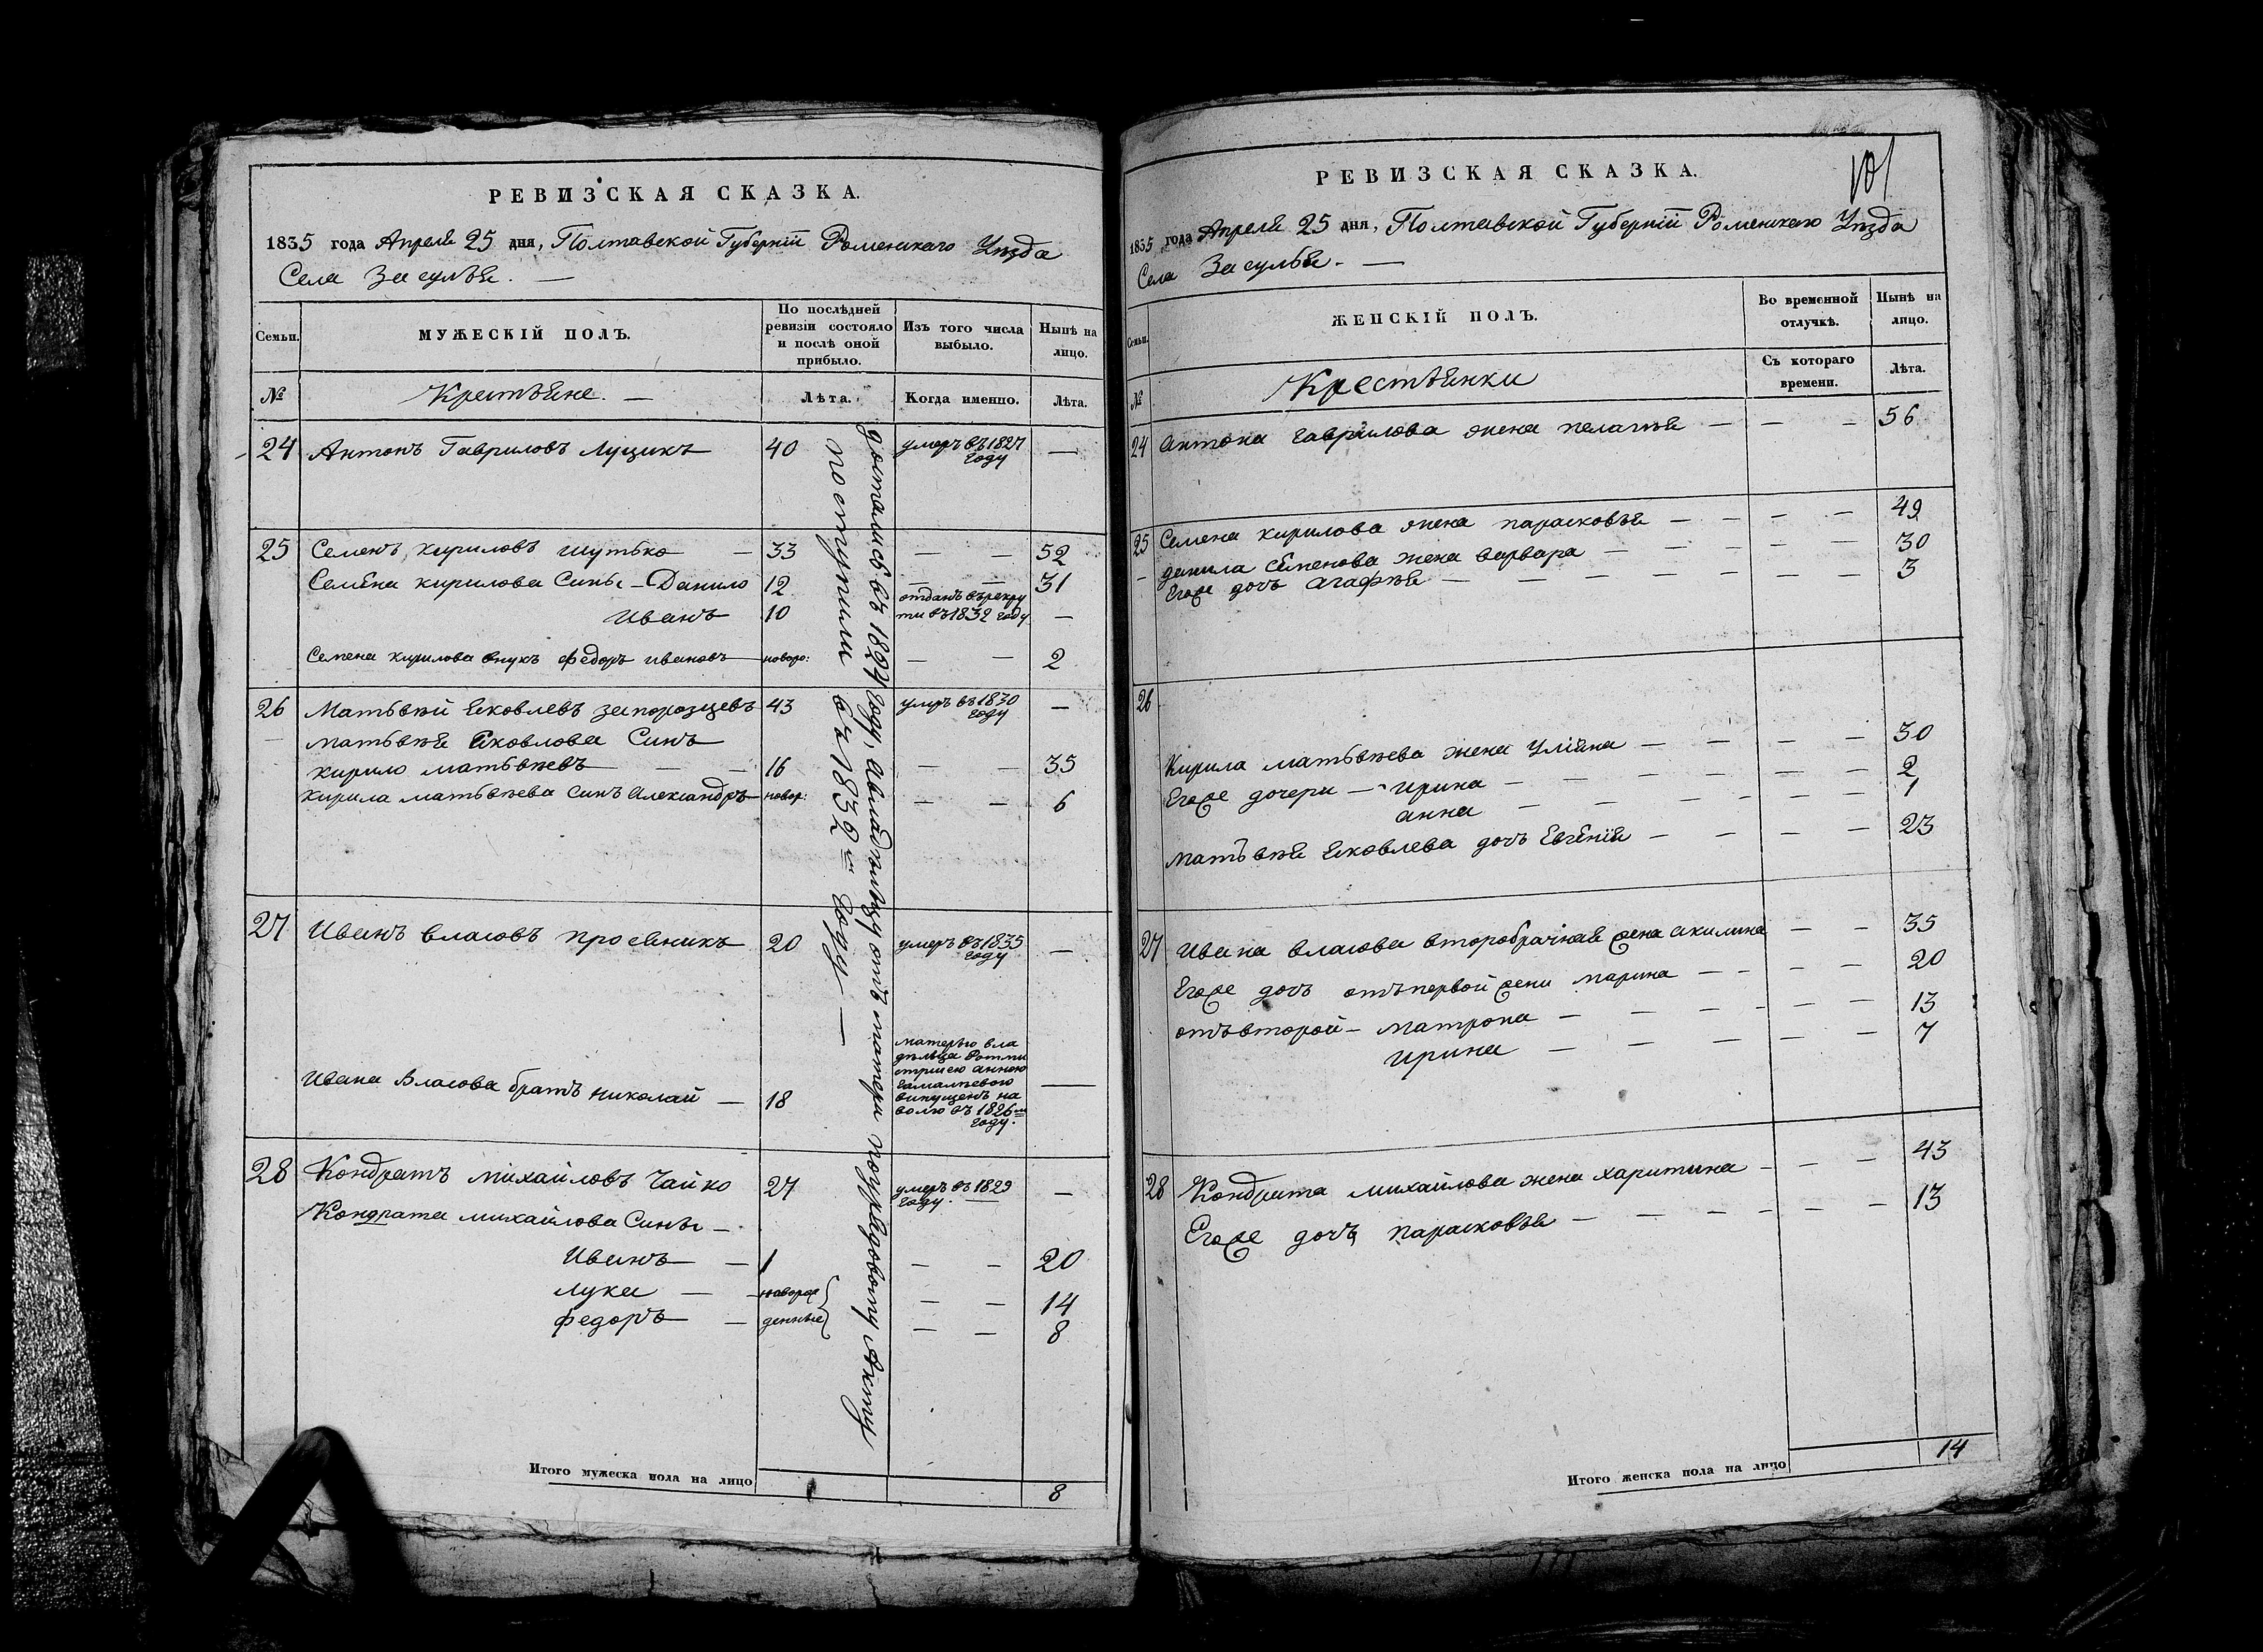 РЕВИЗСКАЯ СКАЗКА.
1835 года Апреля 25 дня, Полтавской Губерніи Роменскаго Уезда
Села Засулья. —
Семьи.
МУЖЕСКІЙ ПОЛЪ.
По послѣдней ревизіи состояло и послѣ оной прибыло.
Изъ того числа выбыло.
Нынѣ на лицо.
№
Крестьяне. —
Лѣта.
Когда именно.
Лѣта.
24 Антонъ Гавриловъ Луцикъ 40 умеръ въ 1827 году —
25 Семенъ Кириловъ Шутько — 33 — — 52
Семена Кирилова Сины — Данило 12 — — 31
Иванъ 10 отданъ въ рекру ти въ 1832 году —
Семена Кирилова внукъ Федоръ Ивановъ новоро: — — 2
26 Матвѣй Яковлевъ Запорозцевъ 43 умръ въ 1830 году —
Матвѣя Яковлова Синъ
Кирило Матвѣевъ — — 16 — — 35
Кирила Матвѣева Синъ Александръ новор: — — 6
27 Иванъ Власовъ Просяникъ 20 умеръ въ 1835 году —
Ивана Власова братъ Николай — 18 матерью вла дѣльца Ротми стршею Анною Гамалѣевою випущенъ на волю въ 1826м году. —
28 Кондратъ Михайловъ Чайко 27 умеръ въ 1829 году. —
Кондрата Михайлова Сины —
Иванъ — 1 — — 20
Лука — новорож — — 14
Федоръ — денные — — 8
достались въ 1824 году, а владѣльцу отъ матери по
поступили въ 1832м году —
Итого мужеска пола на лицо
8
РЕВИЗСКАЯ СКАЗКА.
101
1835 года Апреля 25 дня, Полтавской Губерніи Роменскаго Уезда
Села Засулья. —
Семьи.
ЖЕНСКІЙ ПОЛЪ.
Во временной отлучкѣ.
Нынѣ на лицо.
№
Крестьянки
Съ котораго времени.
Лѣта.
24 Антона Гаврилова жена Пелагѣя — — — 56
25 Семена Кирилова жена Парасковья — — — — 49
Данила Семенова жена Варвара — — — — 30
Егоже дочь Агафѣя — — — — 3
26
Кирила Матвѣева жена Уліяна — — — — 30
Егоже дочери — Ирина — — — — 2
Анна — — — — 1
Матвѣя Яковлева дочь Евгенія — — — — 23
27 Ивана Власова второбрачная жена Акилина — — 35
Егоже дочь отъ первой жени Марина — — — — 20
отъ второй — Матрона — — — — 13
Ирина — — — — 7
28 Кондрата Михайлова жена Харитина — — — 43
Егоже дочь Парасковья — — — — 13
Итого женска пола на лицо
14